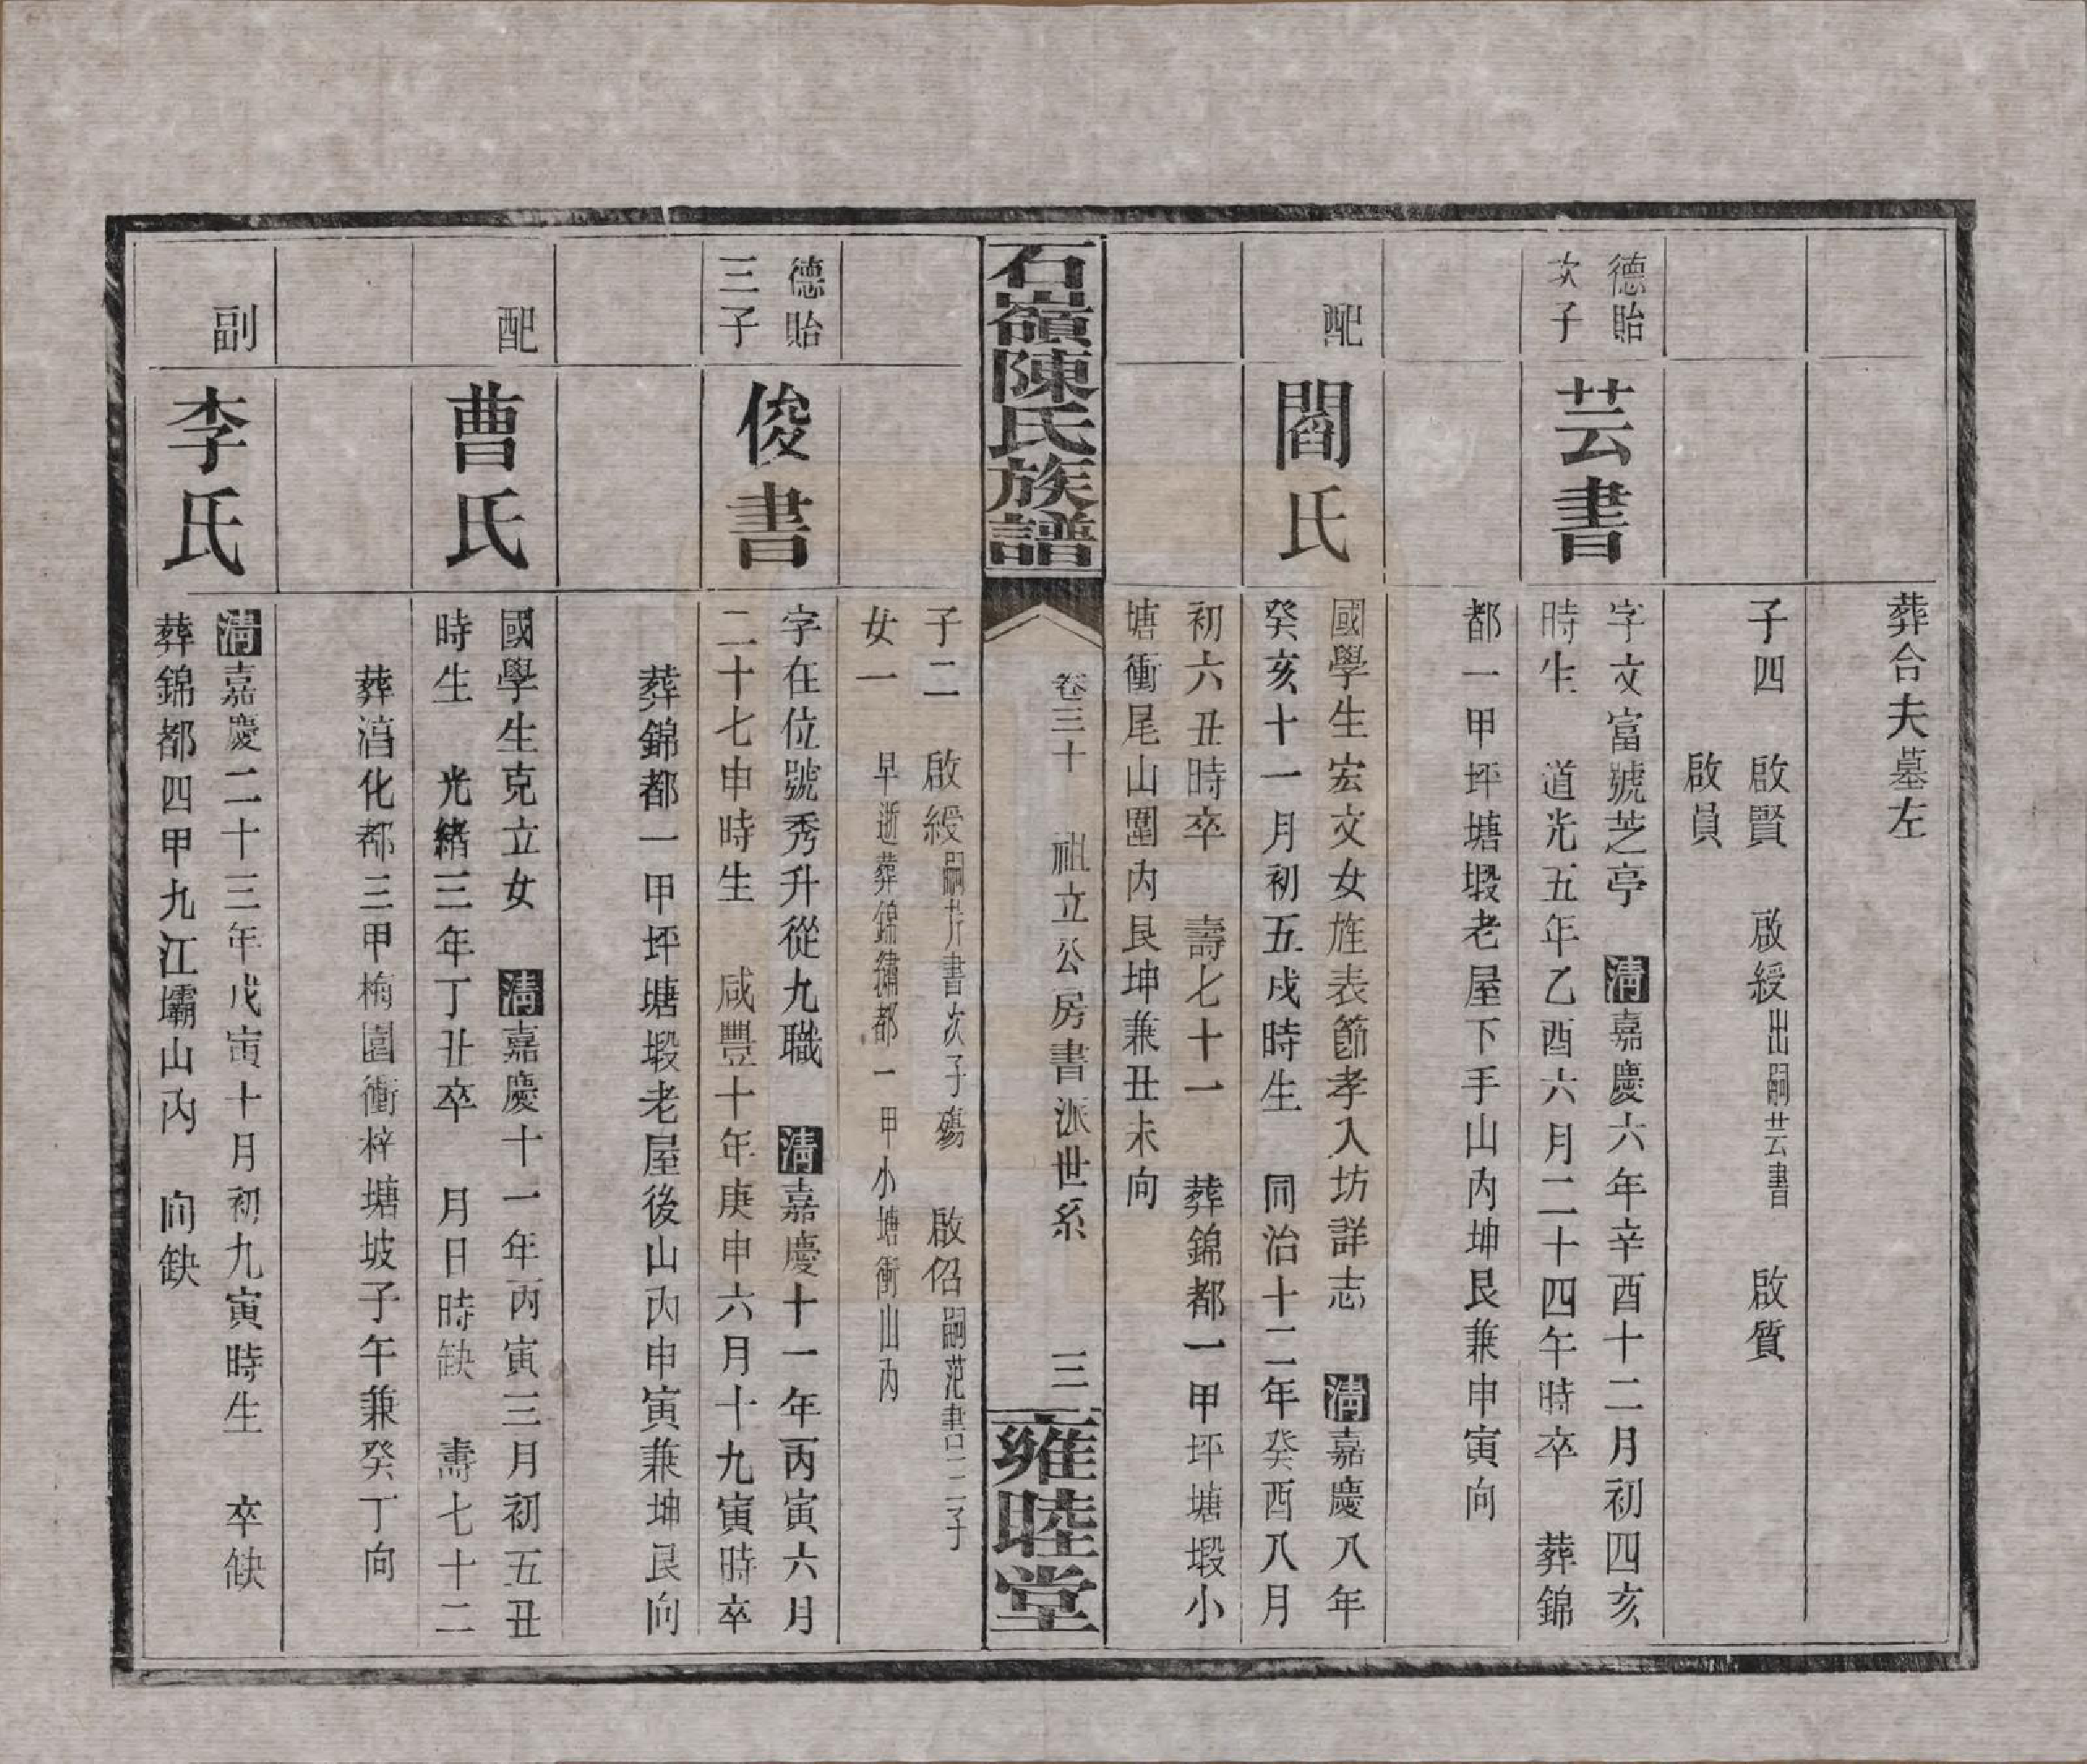 葬合夫墓左
子四　啟賢　啟綬出嗣芸書　啟質
啟員
德貽
次子
芸書
字文富號芝亭　清嘉慶六年辛酉十二月初四亥
時生　道光五年乙酉六月二十四午時卒　葬錦
都一甲坪塘塅老屋下手山內坤艮兼申寅向
配
閻氏
國學生宏文女旌表節孝入坊詳志　清嘉慶八年
癸亥十一月初五戌時生　同治十二年癸酉八月
初六丑時卒　壽七十一　葬錦都一甲坪塘塅小
塘衝尾山圍內艮坤兼丑未向
石嶺陳氏族譜
卷三十　祖立公房書派世系　三
雍睦堂
子二　啟綬嗣芥書次子殤　啟佋嗣范書二子
女一　早逝葬錦繡都一甲小塘衝山內
德貽
三子
俊書
字在位號秀升從九職　清嘉慶十一年丙寅六月
二十七申時生　咸豐十年庚申六月十九寅時卒
葬錦都一甲坪塘塅老屋後山內申寅兼坤艮向
配
曹氏
國學生克立女　清嘉慶十一年丙寅三月初五丑
時生　光緒三年丁丑卒　月日時缺　壽七十二
葬淯化都三甲梅園衝梓塘坡子午兼癸丁向
副
李氏
清嘉慶二十三年戊寅十月初九寅時生　卒缺
葬錦都四甲九江壩山內　向缺